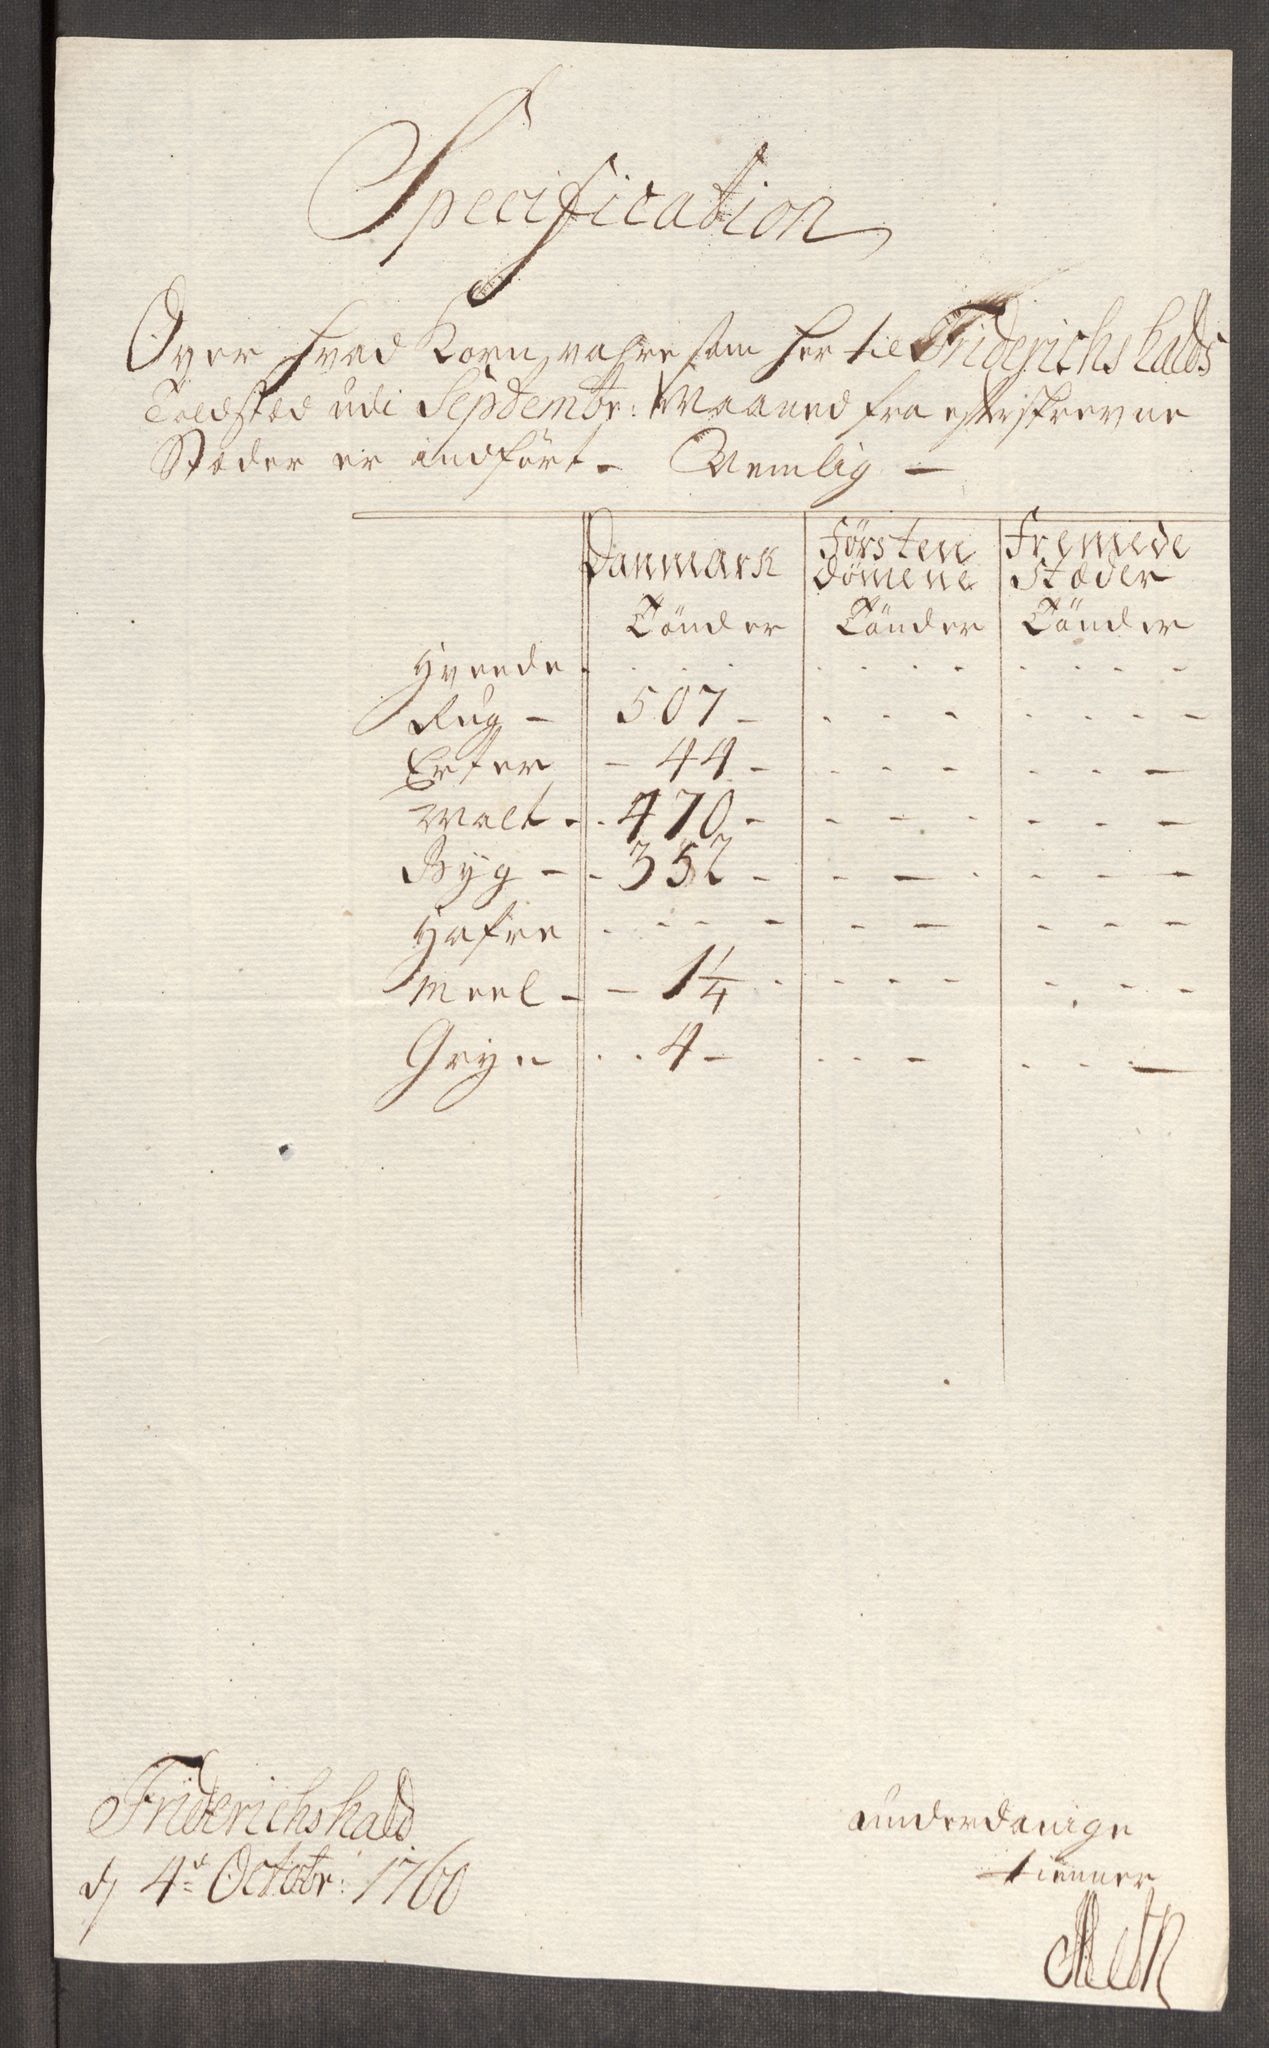 Specification
Over hvad Korn vahre som her til Friderichshalds
Toldsted udi Septembr: Maaned fra efterskrevne
Stæder er indført - Nemlig -
Danmark Førsten Fremede
dømene Stæder
Tönder Tönder Tönder
Hveede
Rug - 507 -
Erter - 44 -
Malt - 470 -
Byg - 352 -
Hafre
Meel - 1 1/4
Gryn 4 -
Friderichshald
d 4de Octobr: 1760
underdanige
tienner